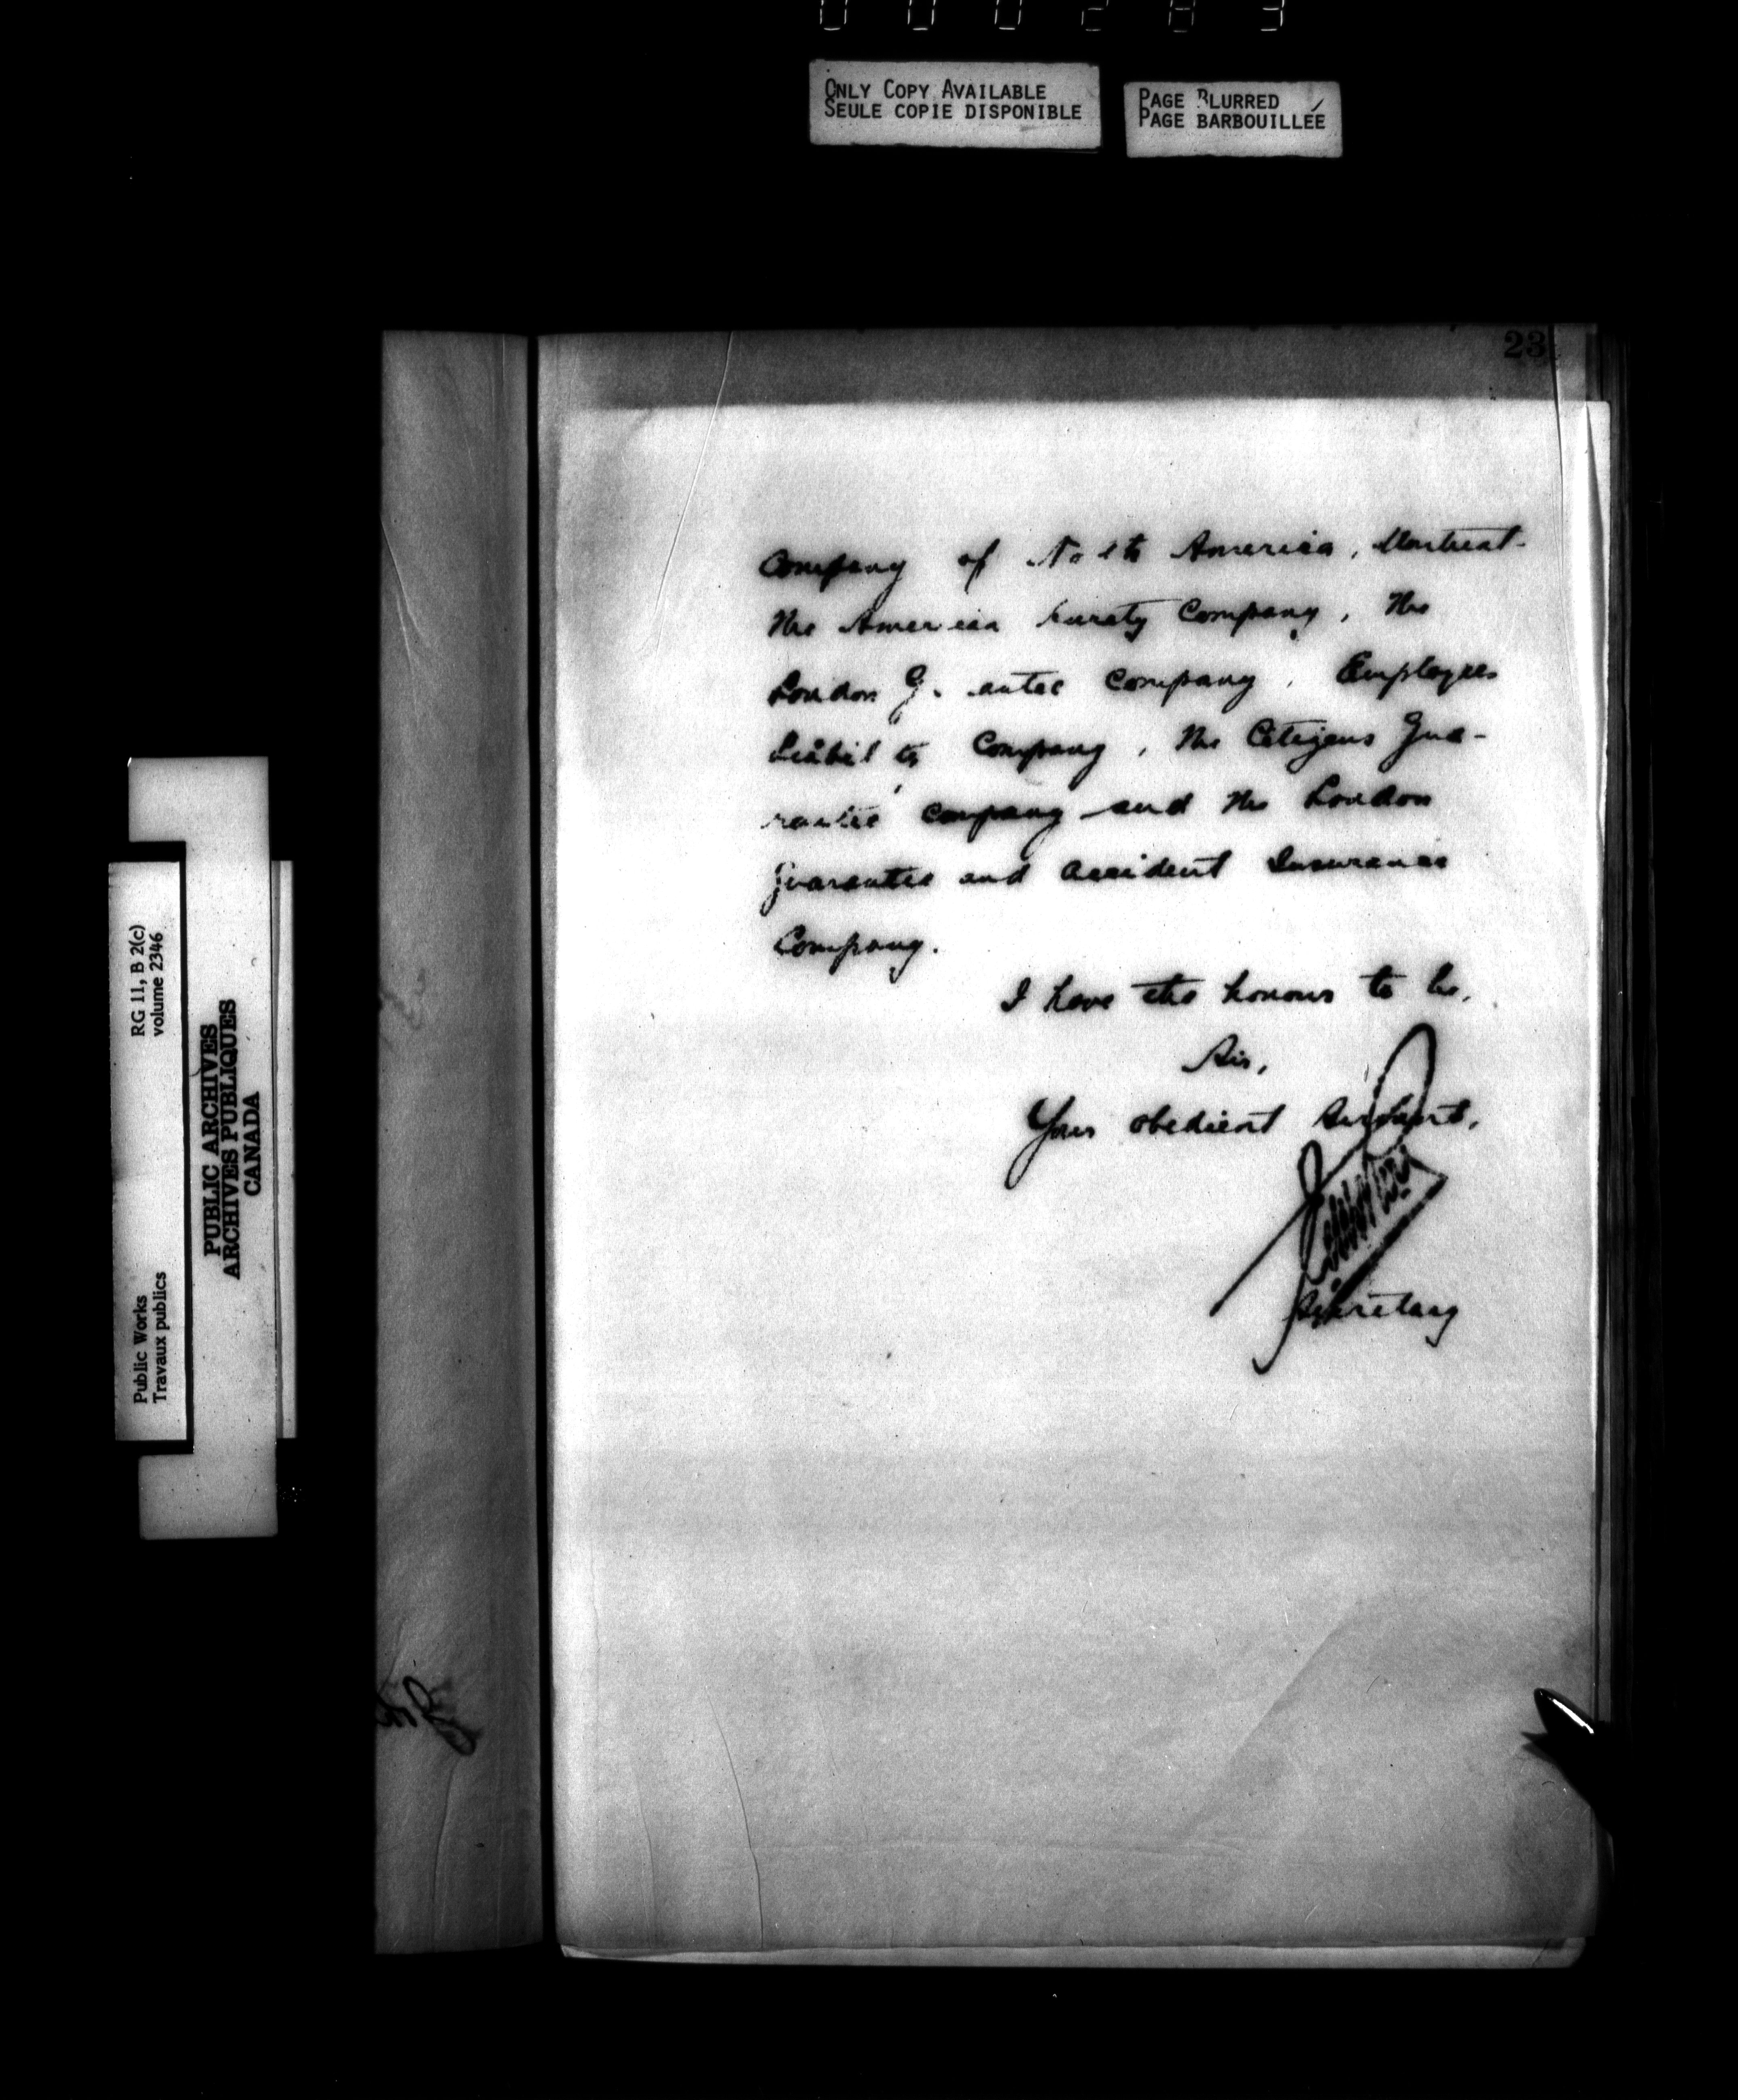 000283
ONLY COPY AVAILABLE
SEULE COPIE DISPONIBLE
PAGE BLURRED
PAGE BARBOUILLÉE
23
Company of North America, Montreal.
The American Surety Company, The
London Guarantee Company, Employees
Liability Company, The Citizens Gua-
rantee Company and the London
Guarantee and Accident Insurance
Company.
I have the honour to be,
Sir,
Your obedient Servant,
Secretary
RG 11, B 2(c)
volume 2346
Public Works
Travaux publics
PUBLIC ARCHIVES
ARCHIVES PUBLIQUES
CANADA